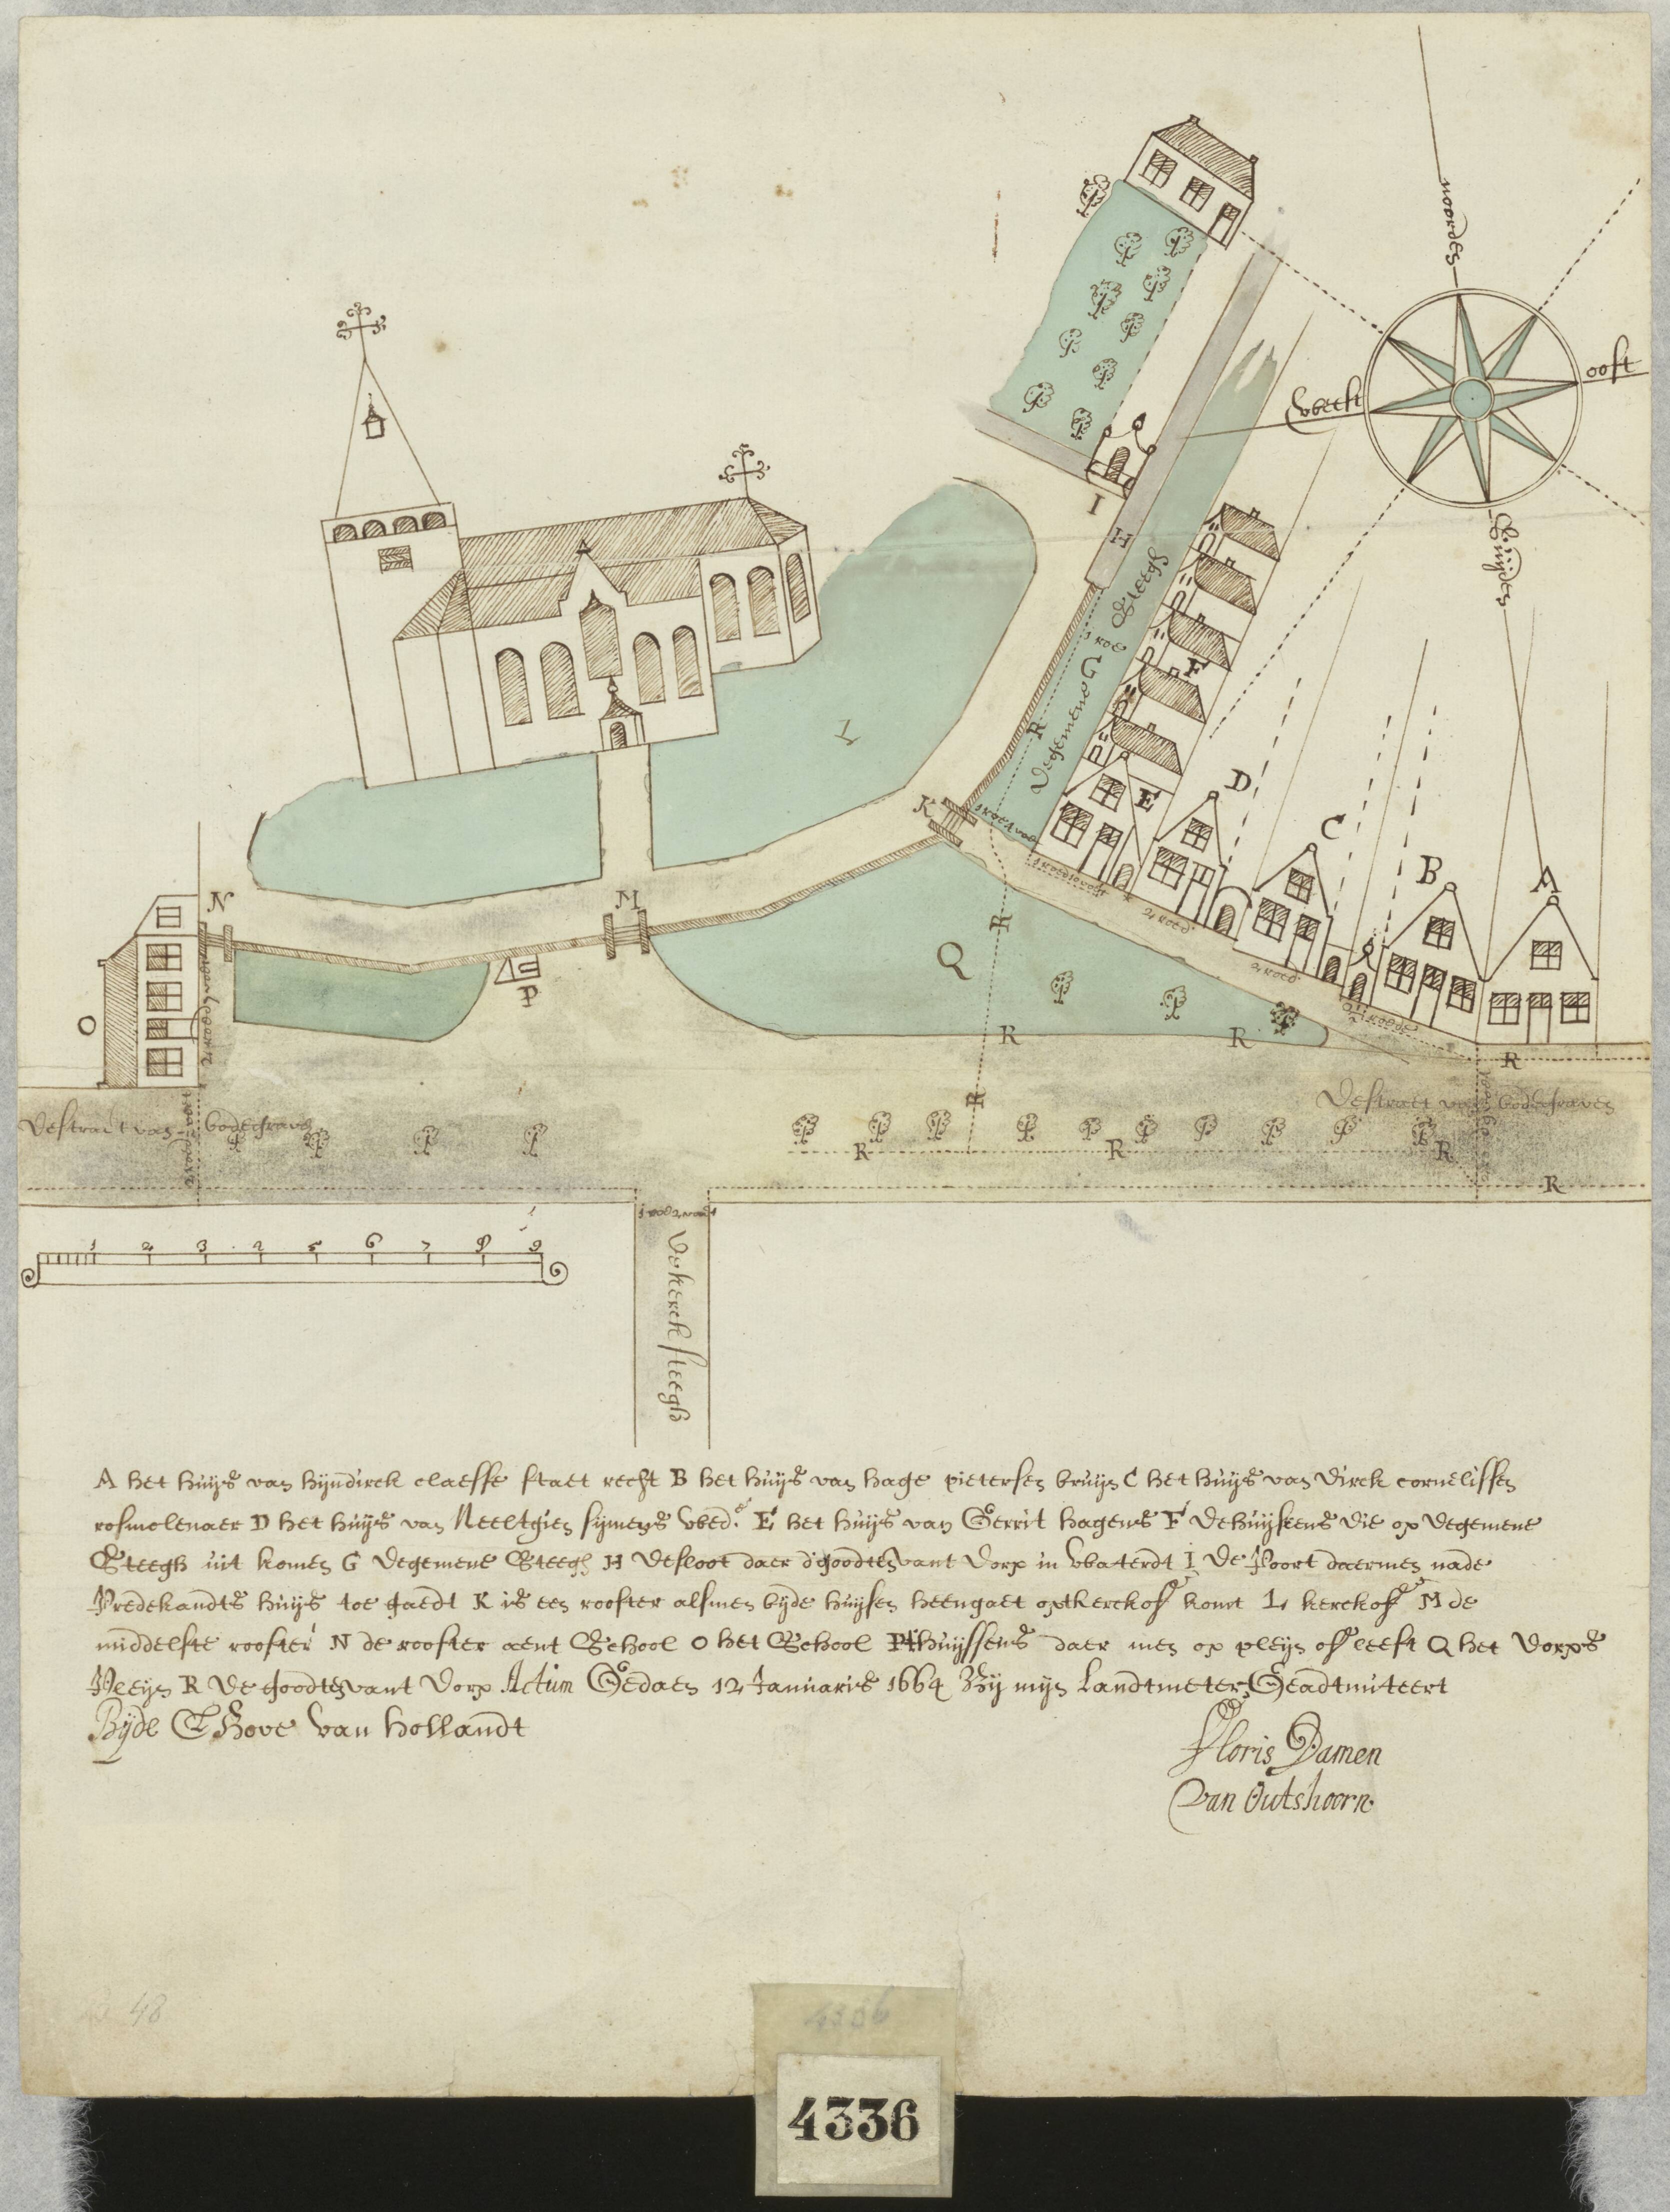 noorden
oost
West
Zuijden
I
H
Steegh
1 roe
G
Degemene
R
F
E
D
C
B
A
K
L
M
N
O
P
Q
R
R
R
R
R
2 roed
2 roed
Destraet van bodegraven
Destraet van bodegraven
R
R
R
R
R
1 2 3 4 5 6 7 8 9
Dekerck steegh
A het huijs van hijndirck claesse staet recht B het huijs van hage pietersen bruijn C het huijs van dirck cornelissen
rosmolenaer D het huijs van Neeltgien sijmens wed: E het huijs van Gerrit hagens F de huijskens die op degemene
Steegh uit komen G degemene Steegh H desloot daer d'goodten vant dorp in wbaterdt I De Poort daermen nade
Predekandts huijs toe gaedt K is een rooster alsmen bijde huijsen heengaet opt kerckhof komt L kerckhof M de
middelste rooster N de rooster aent School O het School P t'huijssens daer men op pleijn of leest Q het dorps
Pleijn R de goodten vant dorp Actum Gedaen 12 Januarie 1664 Bij mijn Landtmeter Geadtmiteert
Bijde E Hove van Hollandt
Floris Damen
van Outshoorn
48
4336
4336